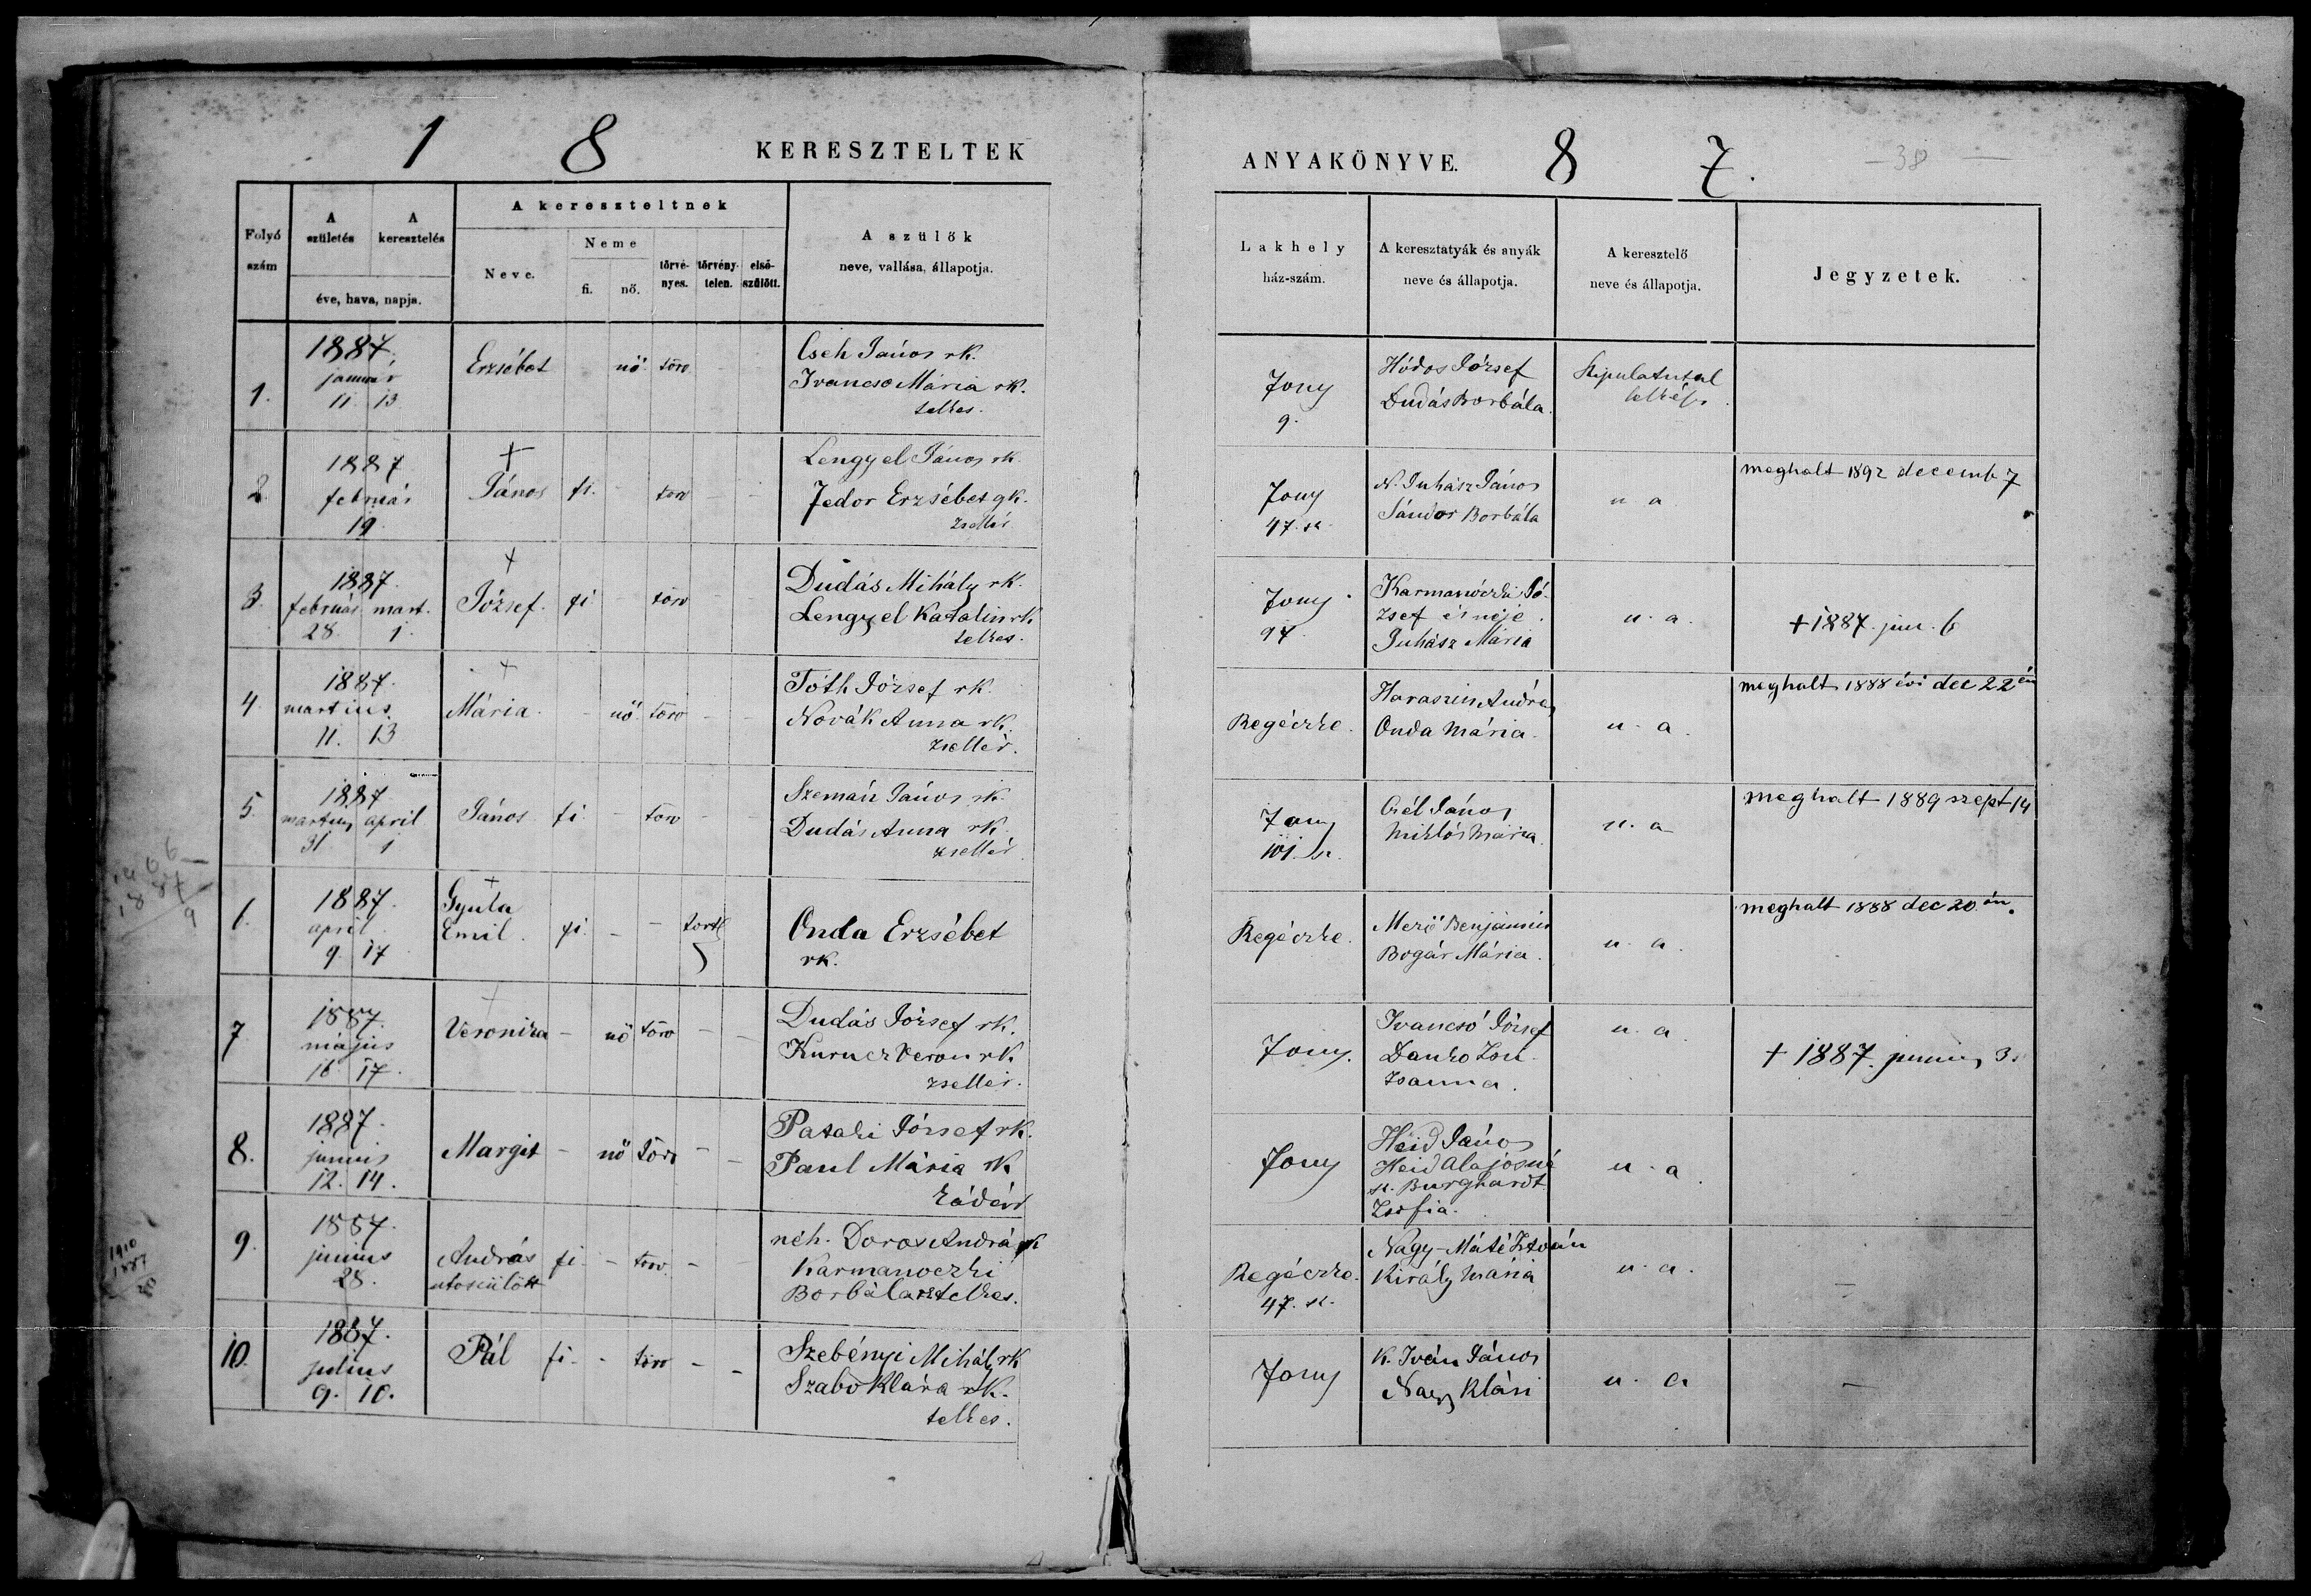 1 8 KERESZTELTEK
ANYAKÖNYVE. 8 7.
38
Folyó szám
A születés
A keresztelés
éve, hava, napja.
A kereszteltnek
Neve.
Neme
fi.
nő.
törvé-nyes.
törvény-telen.
első-szülött.
A szülők
neve, vallása, állapotja.
Lakhely
ház-szám.
A keresztatyák és anyák
neve és állapotja.
A keresztelő
neve és állapotja.
Jegyzetek.
1.
1887
január
11. 13
Erzsébet nő törv
Cseh János rk.
Ivancso Mária rk.
telkes.
Jony
9.
Hódos József
Dudás Borbála.
lelkész
2
1887
február
19
†
János fi. - törv - -
Lengyel János rk.
Fedor Erzsébet gk.
zsellér
Jony
47. sz.
N. Juhász János
Sándor Borbála
u a
meghalt 1892 decemb 7
3.
1887.
február mart.
28. 1.
†
József. fi - törv - -
Dudás Mihály rk.
Lengyel Katalin rk
telkes.
Jony
94.
Karmanóczki Jó-
zsef és neje
Juhász Mária
u. a.
† 1887. jun. 6
4.
1887.
martius
11. 13
†
Mária - nő. törv - -
Tóth József rk.
Novák Anna rk.
zsellér.
Regéczke.
Haraszin András
Onda Mária.
u. a.
meghalt 1888 évi dec 22 én
5.
1887
martius april
31 1
János fi. - törv - -
Szemán János rk.
Dudás Anna rk.
zsellér
Jony
101. sz.
Gél János
Miklós Mária.
u. a
meghalt 1889 szept 14
1887
9
6.
1887.
april
9. 17
†
Gyula
Emil. fi. - - törtl
Onda Erzsébet
rk.
Regéczke.
Merő Benjámin
Bogár Mária.
u. a.
meghalt 1888 dec 20 án.
7
1887.
május
16 17.
†
Veronika - nő törv - -
Dudás József rk.
Kurucz Veron rk
zsellér.
Jony.
Ivancsó József
Danko Zsu-
zsanna.
u. a
† 1887. junius 3.
8.
1887.
junius
12. 14.
Margit - nő törv - -
Pataki József rk.
Paul Mária rk
kádár
Jony
Heid János
Heid Alajosné
sz. Burghardt
Zsofia.
u. a.
1910
1887
9.
1887.
junius
28.
András fi - törv - -
utószülött
néh. Doros András rk
Karmanoczki
Borbála rk telkes.
Regéczke.
47. sz.
Nagy-Máté István
Király Mária
u. a.
10.
1887.
julius
9. 10.
Pál fi. - törv - -
Szebényi Mihály rk
Szabo Klára rk.
telkes.
Jony
K. Iván János
Nagy Klári
u. a